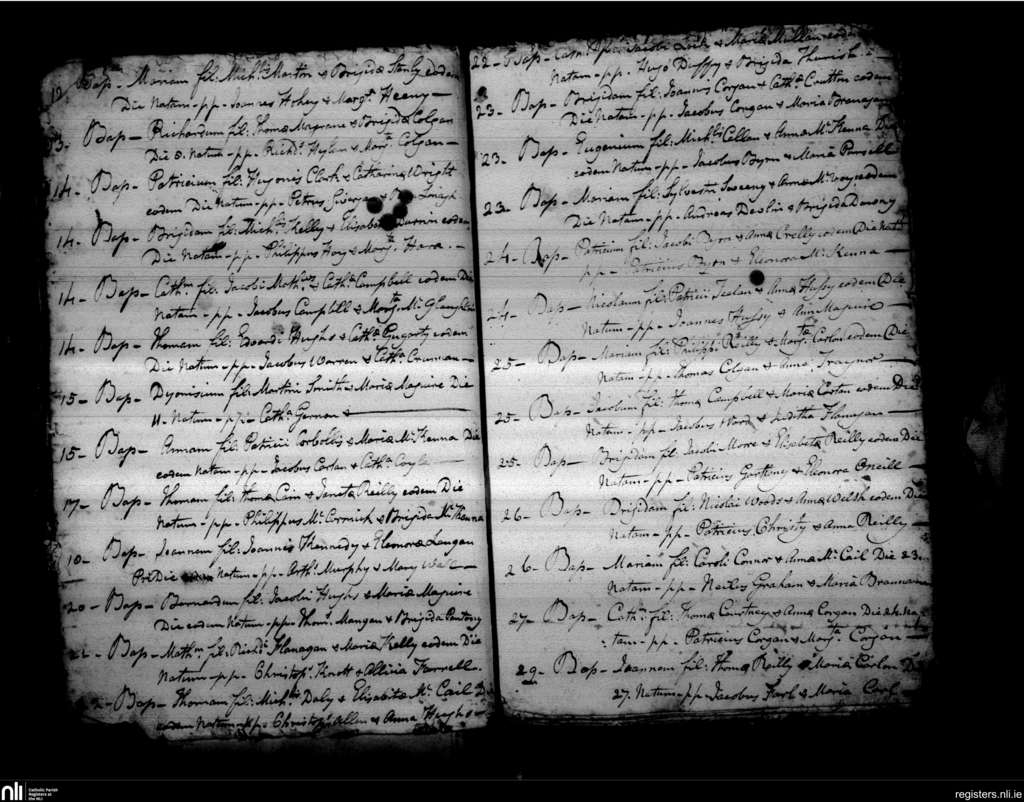 12 Bap- Mariam fil: Michls Martin & Brigidæ Stanly eodem
Die Natam - pp - Joannes Hohey & Margt Heeny -
13- Bap- Richardum fil: Thomæ Magrane & Brigidæ Colgan
Die 5. Natum - pp - Richds & Mary Colgan -
14- Bap- Patricium fil: Hugonis Clark & Catharinæ Wright
eodem Die Natum - pp - Petrus
14- Bap- Brigidam fil: Michls Kelly & Elisabeth Durnin eodem
Die Natam - pp - Philippus Hoey & Margt Hara -
14- Bap- Cathm fil: Jacobi & Cathæ Campbell eodem Die
Natam - pp - Jacobus Campbell & Margt
14- Bap- Thomam fil: Edvardi Hughs & Cathæ Gugarty eodem
Die Natum - pp - Jacobus Warren & Catha
15- Bap- Dyonisium fil: Martini Smith & Mariæ Maguire Die
11. Natum - pp - Catha Gernon &
15- Bap- Annam fil: Patricii Corbolly & Mariæ McKenna Die
eodem Natam - pp - Jacobus Carlan & Catha Coyle
17- Bap- Thomam fil: Thomæ Cain & Jenetæ Reilly eodem Die
Natum - pp - Philippus McCormick & Brigida McKenna
Bap- Joannem fil: Joannis Kennedy & Eleonoræ Langan
Die Natum - pp - Arths Murphy & Mary
20- Bap- Bernardum fil: Jacobi Hughs & Mariæ Maguire
Die eodem Natum - pp - Thoms Mangan & Brigida
Bap- Mathm fil: Richdi Flanagan & Mariæ Kelly eodem Die
Natum - pp - Christophs Knott & Allicia Farrell
Bap- Thomam fil: Michls Daly & Elisabetæ McCail Die
eodem Natum - pp - Christophs Allen & Anna Hughs -
22- Bap- Cathm fil: Jacobi & Mariæ Mullen eodem
Natam - pp - Hugo Duffy & Brigida
23- Bap- Brigidam fil: Joannis Corgan & Cathæ eodem
Die Natam - pp - Jacobus Corgan & Maria Branagan
23- Bap- Eugenium fil: Michls Callan & Annæ McKenna Die
eodem Natum - pp - Jacobus Byrn & Maria Pursell
23- Bap- Mariam fil: Sylvestri Sweeny & Annæ eodem
Die Natam - pp - Andreas Devlin & Brigida
24- Bap- Patricium fil: Jacobi Byrn & Annæ Crelly eodem Die Natum
pp - Patricius Byrn & Eleonora McKenna -
24- Bap- Nicolaum fil: Patricii & Annæ Hussy eodem Die
Natum - pp - Joannes Hussy & Ann Maguire
25- Bap- Mariam fil: Philippi Reilly & Margtæ Carlan eodem Die
Natam - pp - Thomas Colgan & Anna Traynor
25- Bap- Jacobum fil: Thomæ Campbell & Mariæ Carlan eodem Die
Natum - pp - Jacobus Ward & Juditha Flanagan -
25- Bap- Brigidam fil: Jacobi Moore & Elisabetæ Reilly eodem Die
Natam - pp - Patricius Gaffney & Eleonora Oneill -
26- Bap- Brigidam fil: Nicolai Woods & Annæ Welsh eodem Die
Natam - pp - Patricius Christy & Anna Reilly -
26- Bap- Mariam fil: Caroli Connor & Annæ McCail Die 23.
Natam - pp - Neilus Graham & Maria Brannan
27- Bap- Cathm fil: Thomæ Courtney & Annæ Corgan Die 24. Na
tam - pp - Patricius Corgan & Margt Corgan -
29- Bap- Joannem fil: Thomæ Reilly & Mariæ Carlan Die
27. Natum - pp - Jacobus Karl & Maria Carl
nli
Catholic Parish
Registers at
the NLI
registers.nli.ie